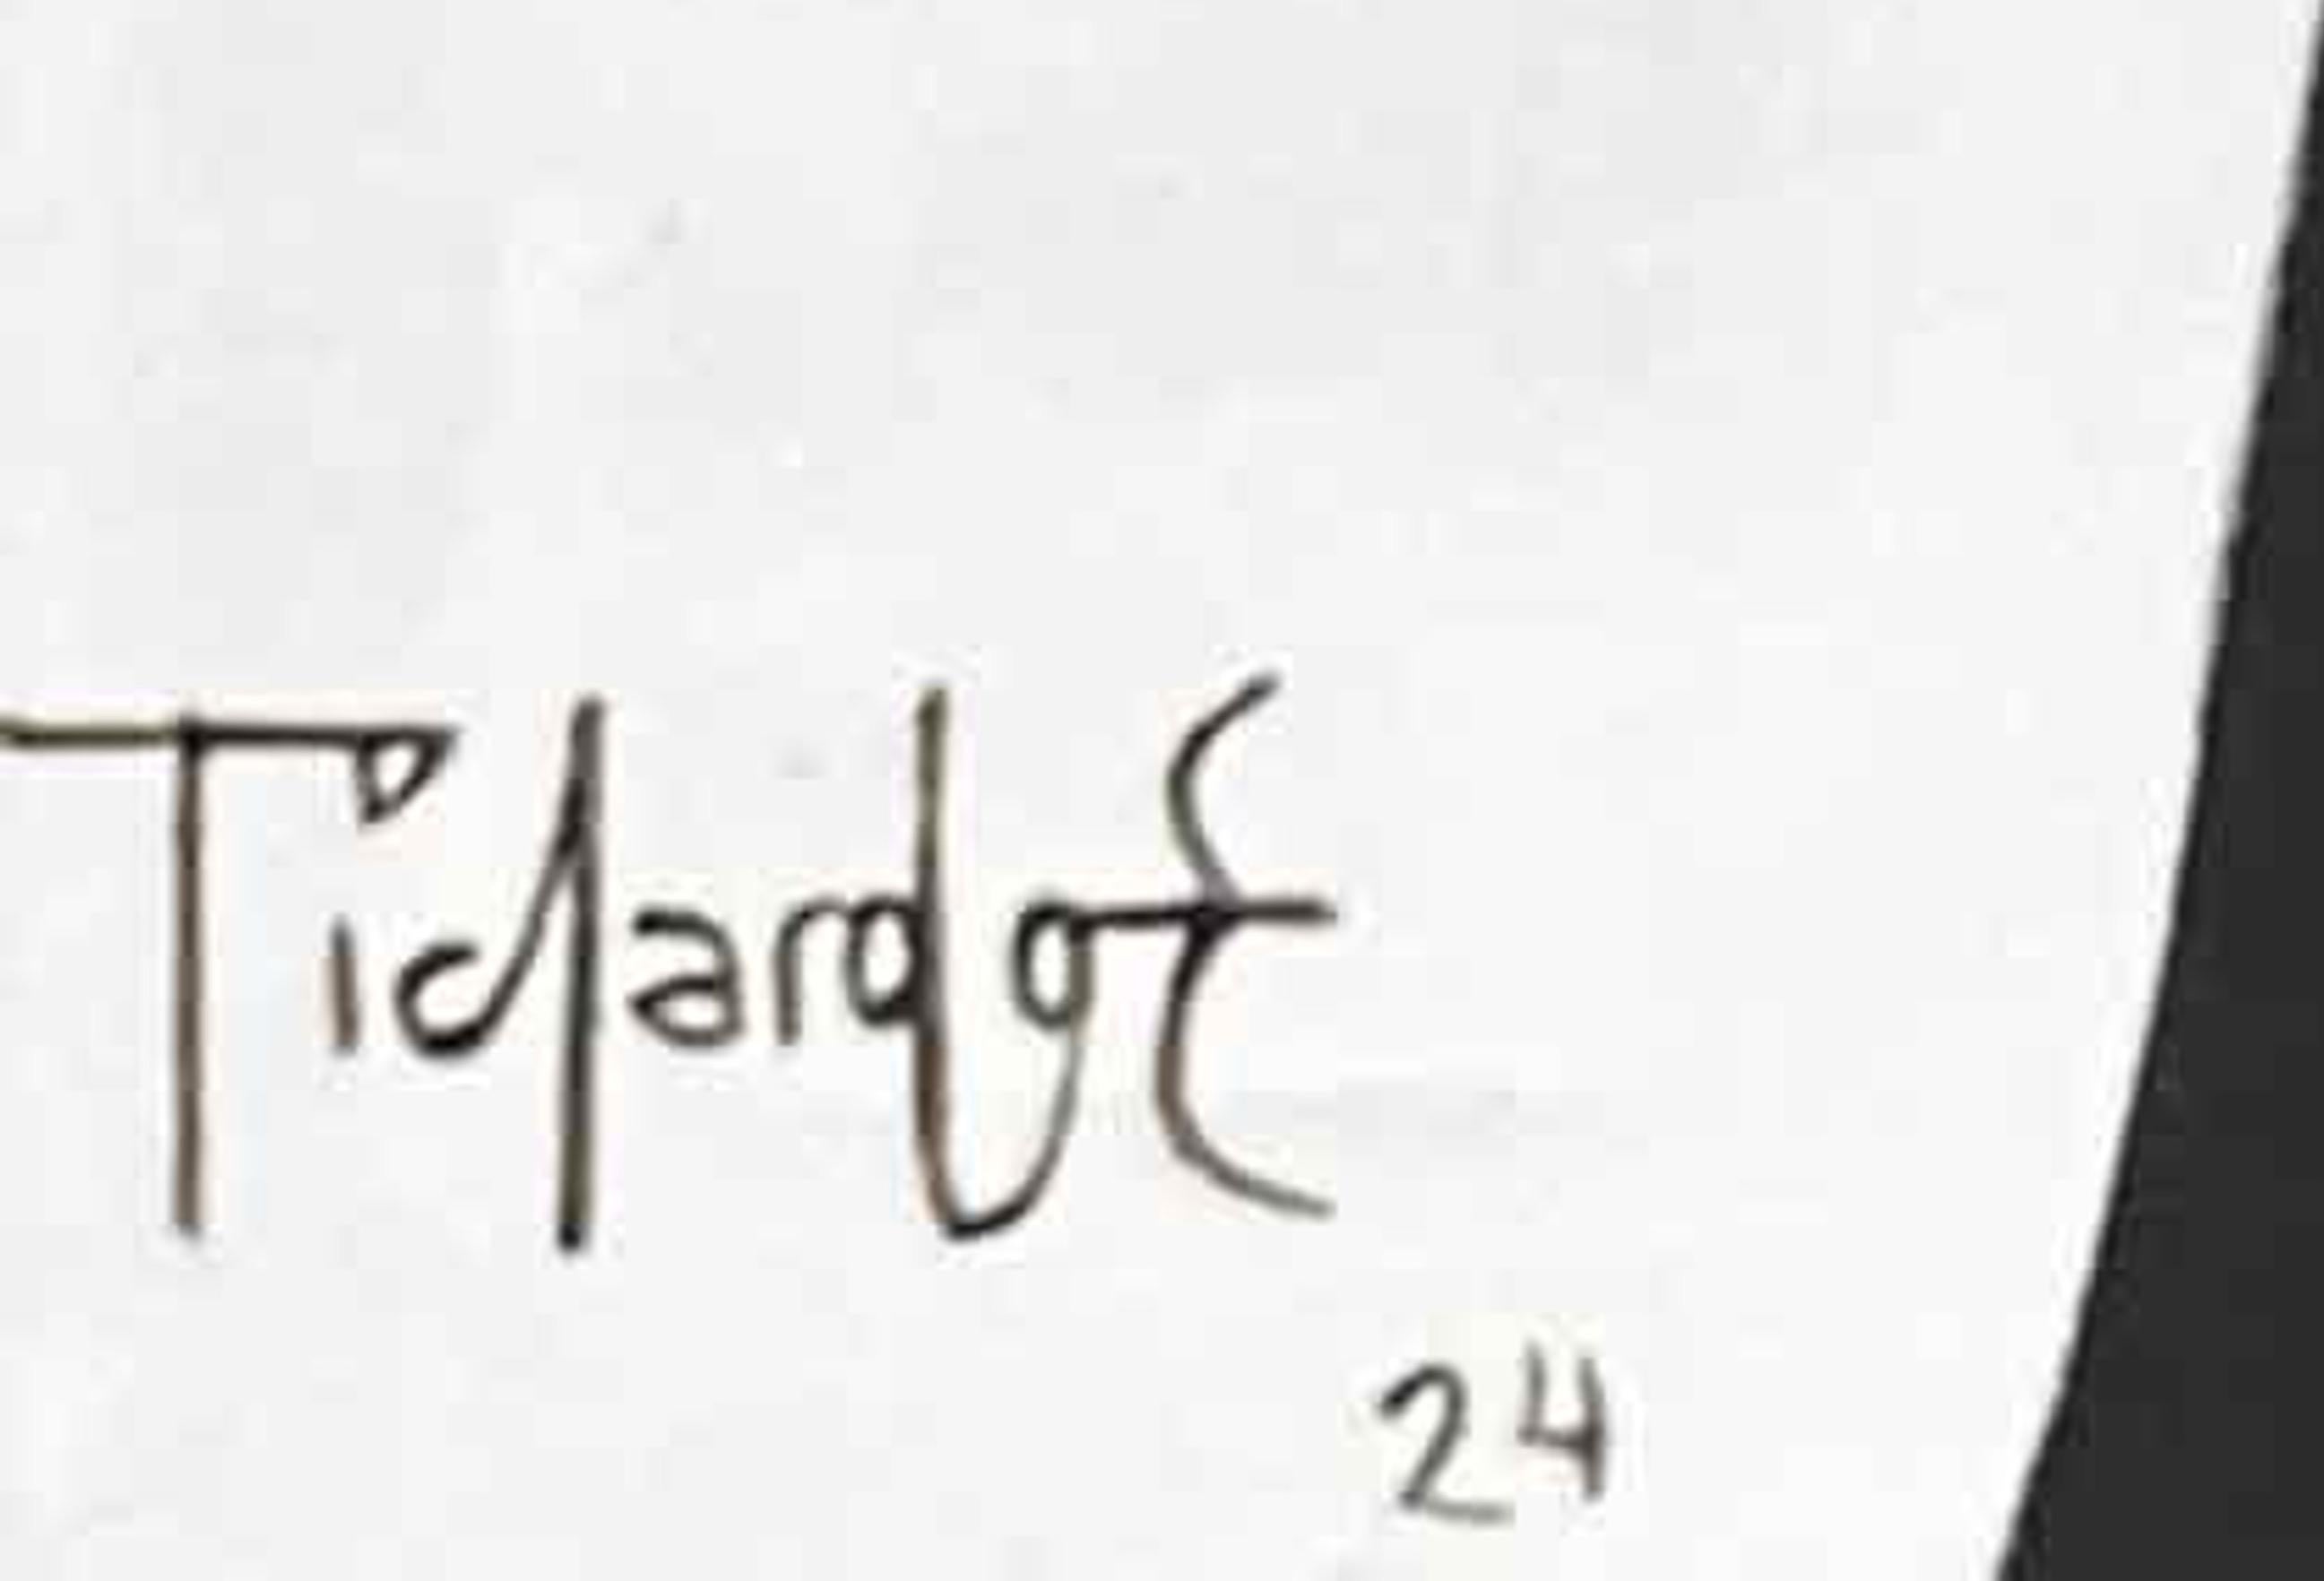 Ticlardo E
24